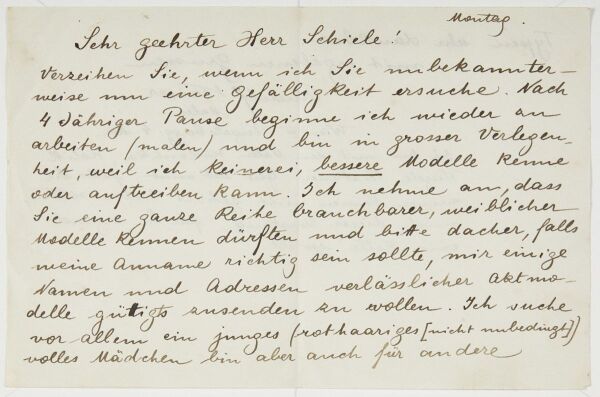 Montag.
Sehr geehrter Herr Schiele!
Verzeihen Sie, wenn ich Sie unbekannter-
weise um eine Gefälligkeit ersuche. Nach
4 Jähriger Pause beginne ich wieder an
arbeiten (malen) und bin in grosser Verlegen-
heit, weil ich keinerei, bessere Modelle kenne
oder auftreiben kann. Ich nehme an, dass
Sie eine ganze Reihe brauchbarer, weiblicher
Modelle kennen dürften und bitte dacher, falls
meine Anname richtig sein sollte, mir einige
Namen und Adressen verlässlicher Aktmo-
delle gütigts zusenden zu wollen. Ich suche
vor allem ein junges (rothaariges [nicht unbedingt])
volles Mädchen bin aber auch für andere